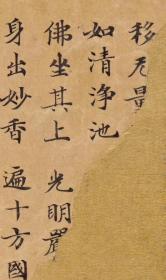 移无量
如清淨池
佛坐其上 光明嚴
身出妙香 遍十方國